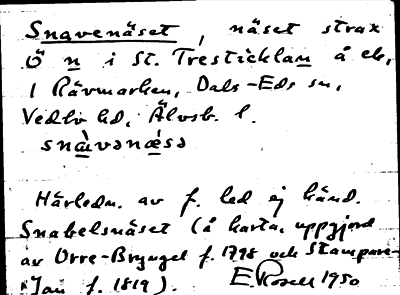 Snavenäset, näset strax
Ö n i St. Tresticklan å ek.
i Rävmarken, Dals-Eds sn,
Vedbo hd, Älvsb. l.
snàvənǽsə
Härledn. av f. led ej känd.
Snabelsnäset (å karta, uppgjord
av Orre-Bryngel f. 1798 och Stampare-
Jan f. 1819). E. Rosell 1950